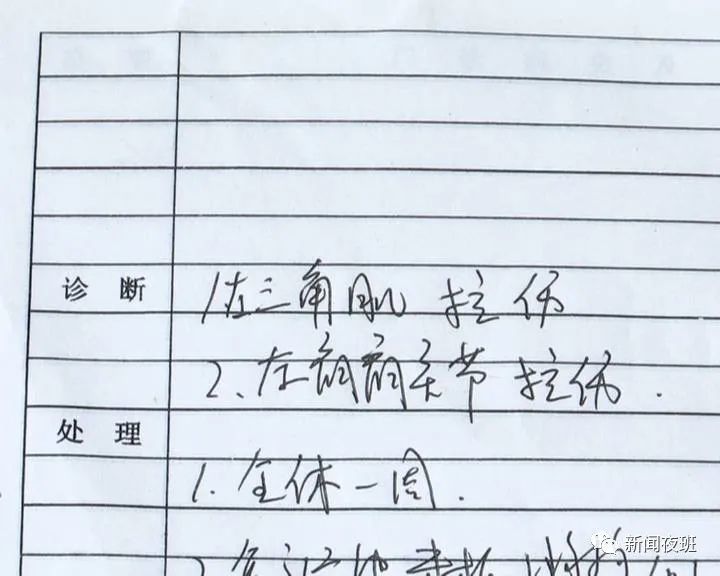 诊 断
1.左三角肌 拉伤
2.左肩关节 拉伤.
处 理
1.全休一周.
新闻夜班